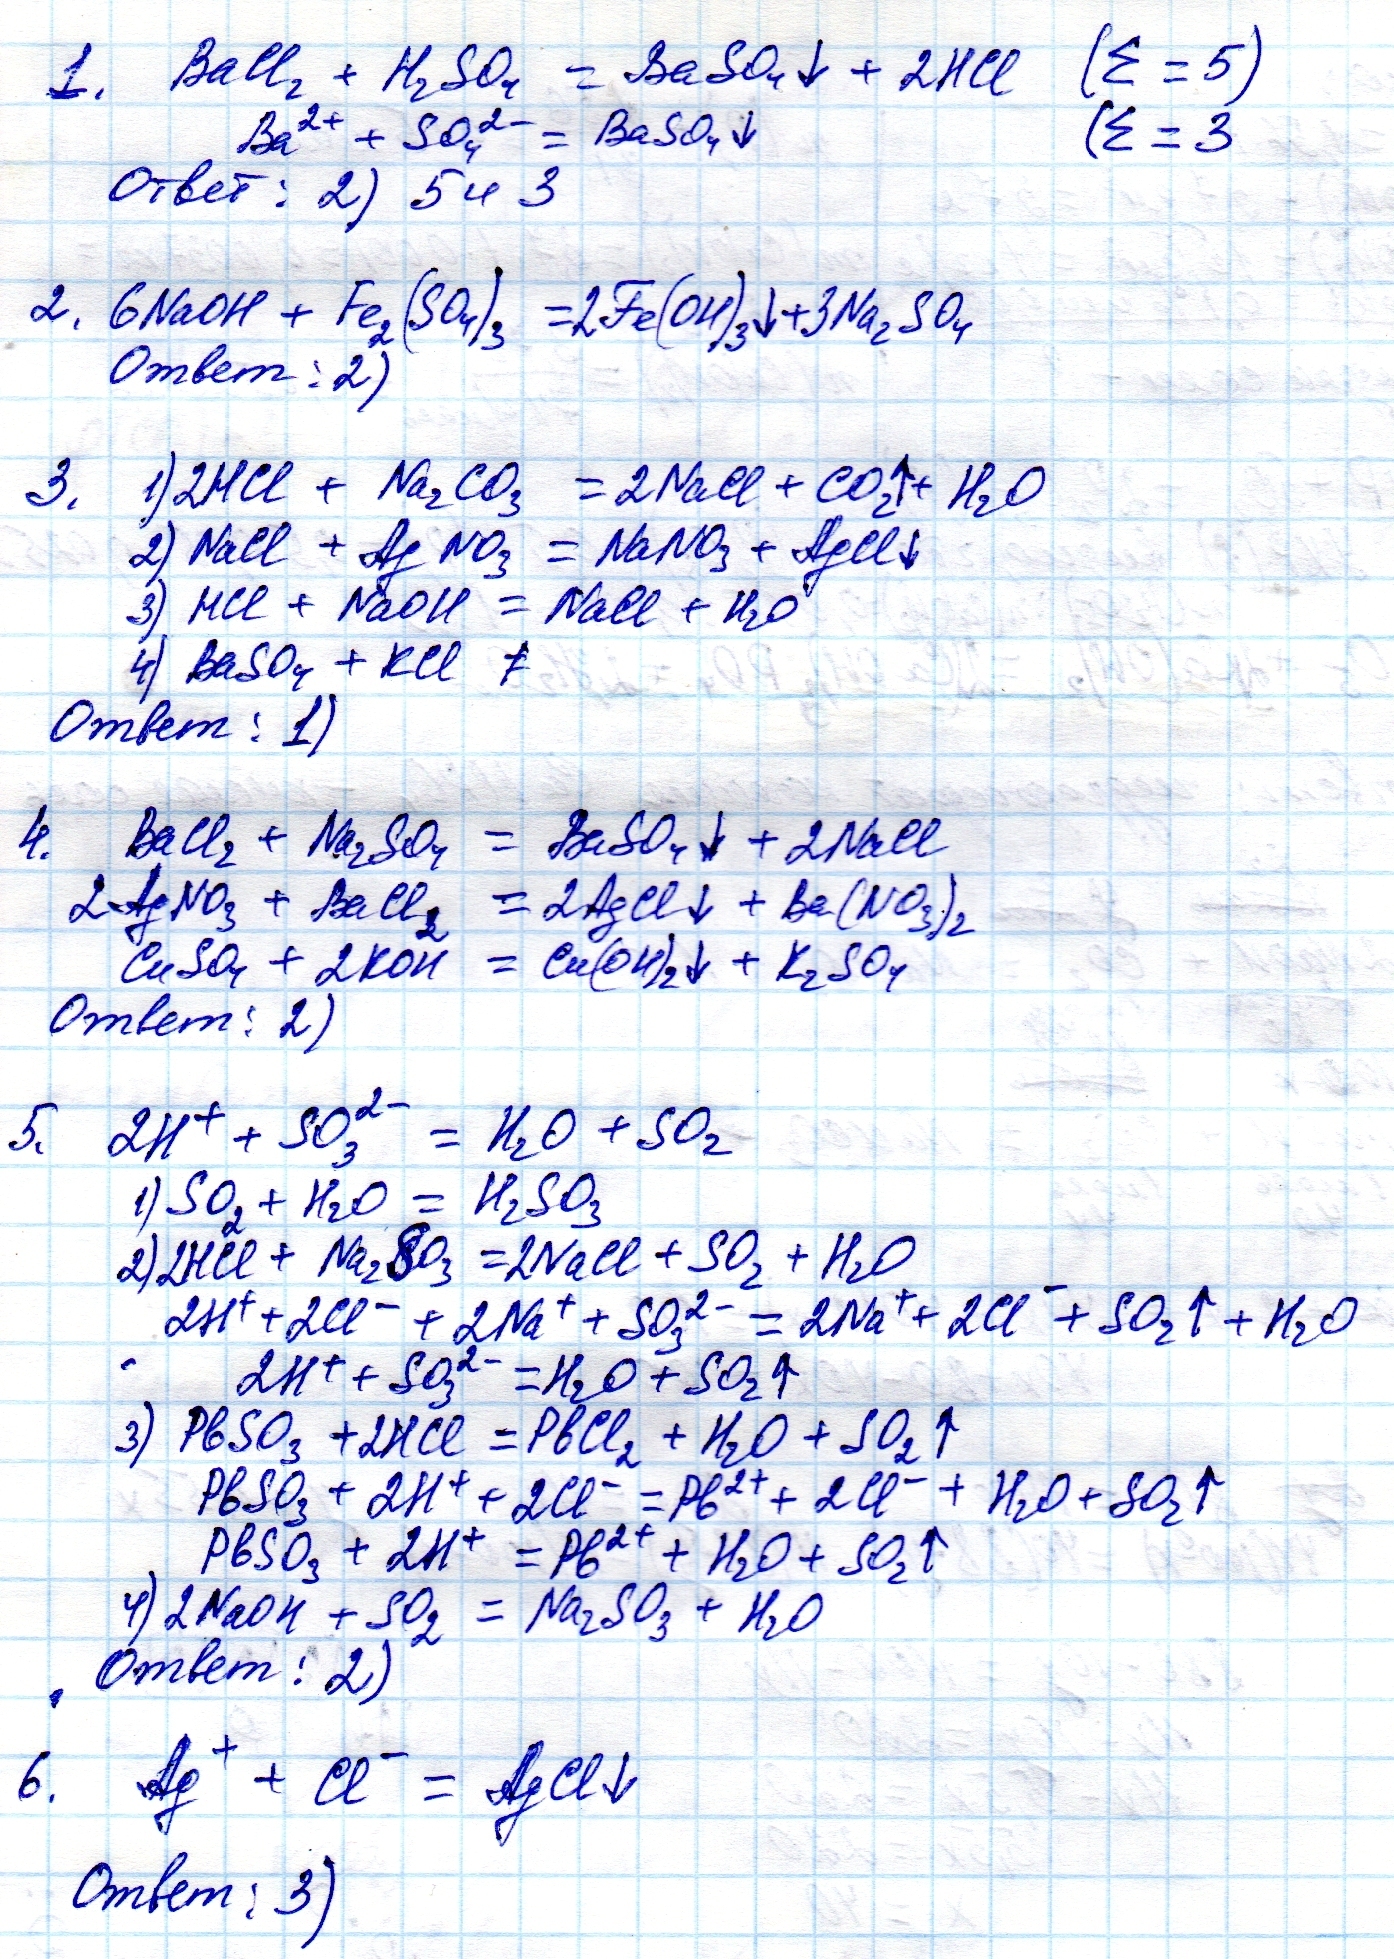 1. BaCl₂ + H₂SO₄ = BaSO₄↓ + 2HCl (Σ = 5)
Ba²⁺ + SO₄²⁻ = BaSO₄↓ (Σ = 3
Ответ: 2) 5 и 3
2. 6NaOH + Fe₂(SO₄)₃ = 2Fe(OH)₃↓ + 3Na₂SO₄
Ответ: 2)
3. 1) 2HCl + Na₂CO₃ = 2NaCl + CO₂↑ + H₂O
2) NaCl + AgNO₃ = NaNO₃ + AgCl↓
3) HCl + NaOH = NaCl + H₂O
4) BaSO₄ + KCl ≠
Ответ: 1)
4. BaCl₂ + Na₂SO₄ = BaSO₄↓ + 2NaCl
2AgNO₃ + BaCl₂ = 2AgCl↓ + Ba(NO₃)₂
CuSO₄ + 2KOH = Cu(OH)₂↓ + K₂SO₄
Ответ: 2)
5. 2H⁺ + SO₃²⁻ = H₂O + SO₂
1) SO₂ + H₂O = H₂SO₃
2) 2HCl + Na₂SO₃ = 2NaCl + SO₂ + H₂O
2H⁺ + 2Cl⁻ + 2Na⁺ + SO₃²⁻ = 2Na⁺ + 2Cl⁻ + SO₂↑ + H₂O
2H⁺ + SO₃²⁻ = H₂O + SO₂↑
3) PbSO₃ + 2HCl = PbCl₂ + H₂O + SO₂↑
PbSO₃ + 2H⁺ + 2Cl⁻ = Pb²⁺ + 2Cl⁻ + H₂O + SO₂↑
PbSO₃ + 2H⁺ = Pb²⁺ + H₂O + SO₂↑
4) 2NaOH + SO₂ = Na₂SO₃ + H₂O
Ответ: 2)
6. Ag⁺ + Cl⁻ = AgCl↓
Ответ: 3)